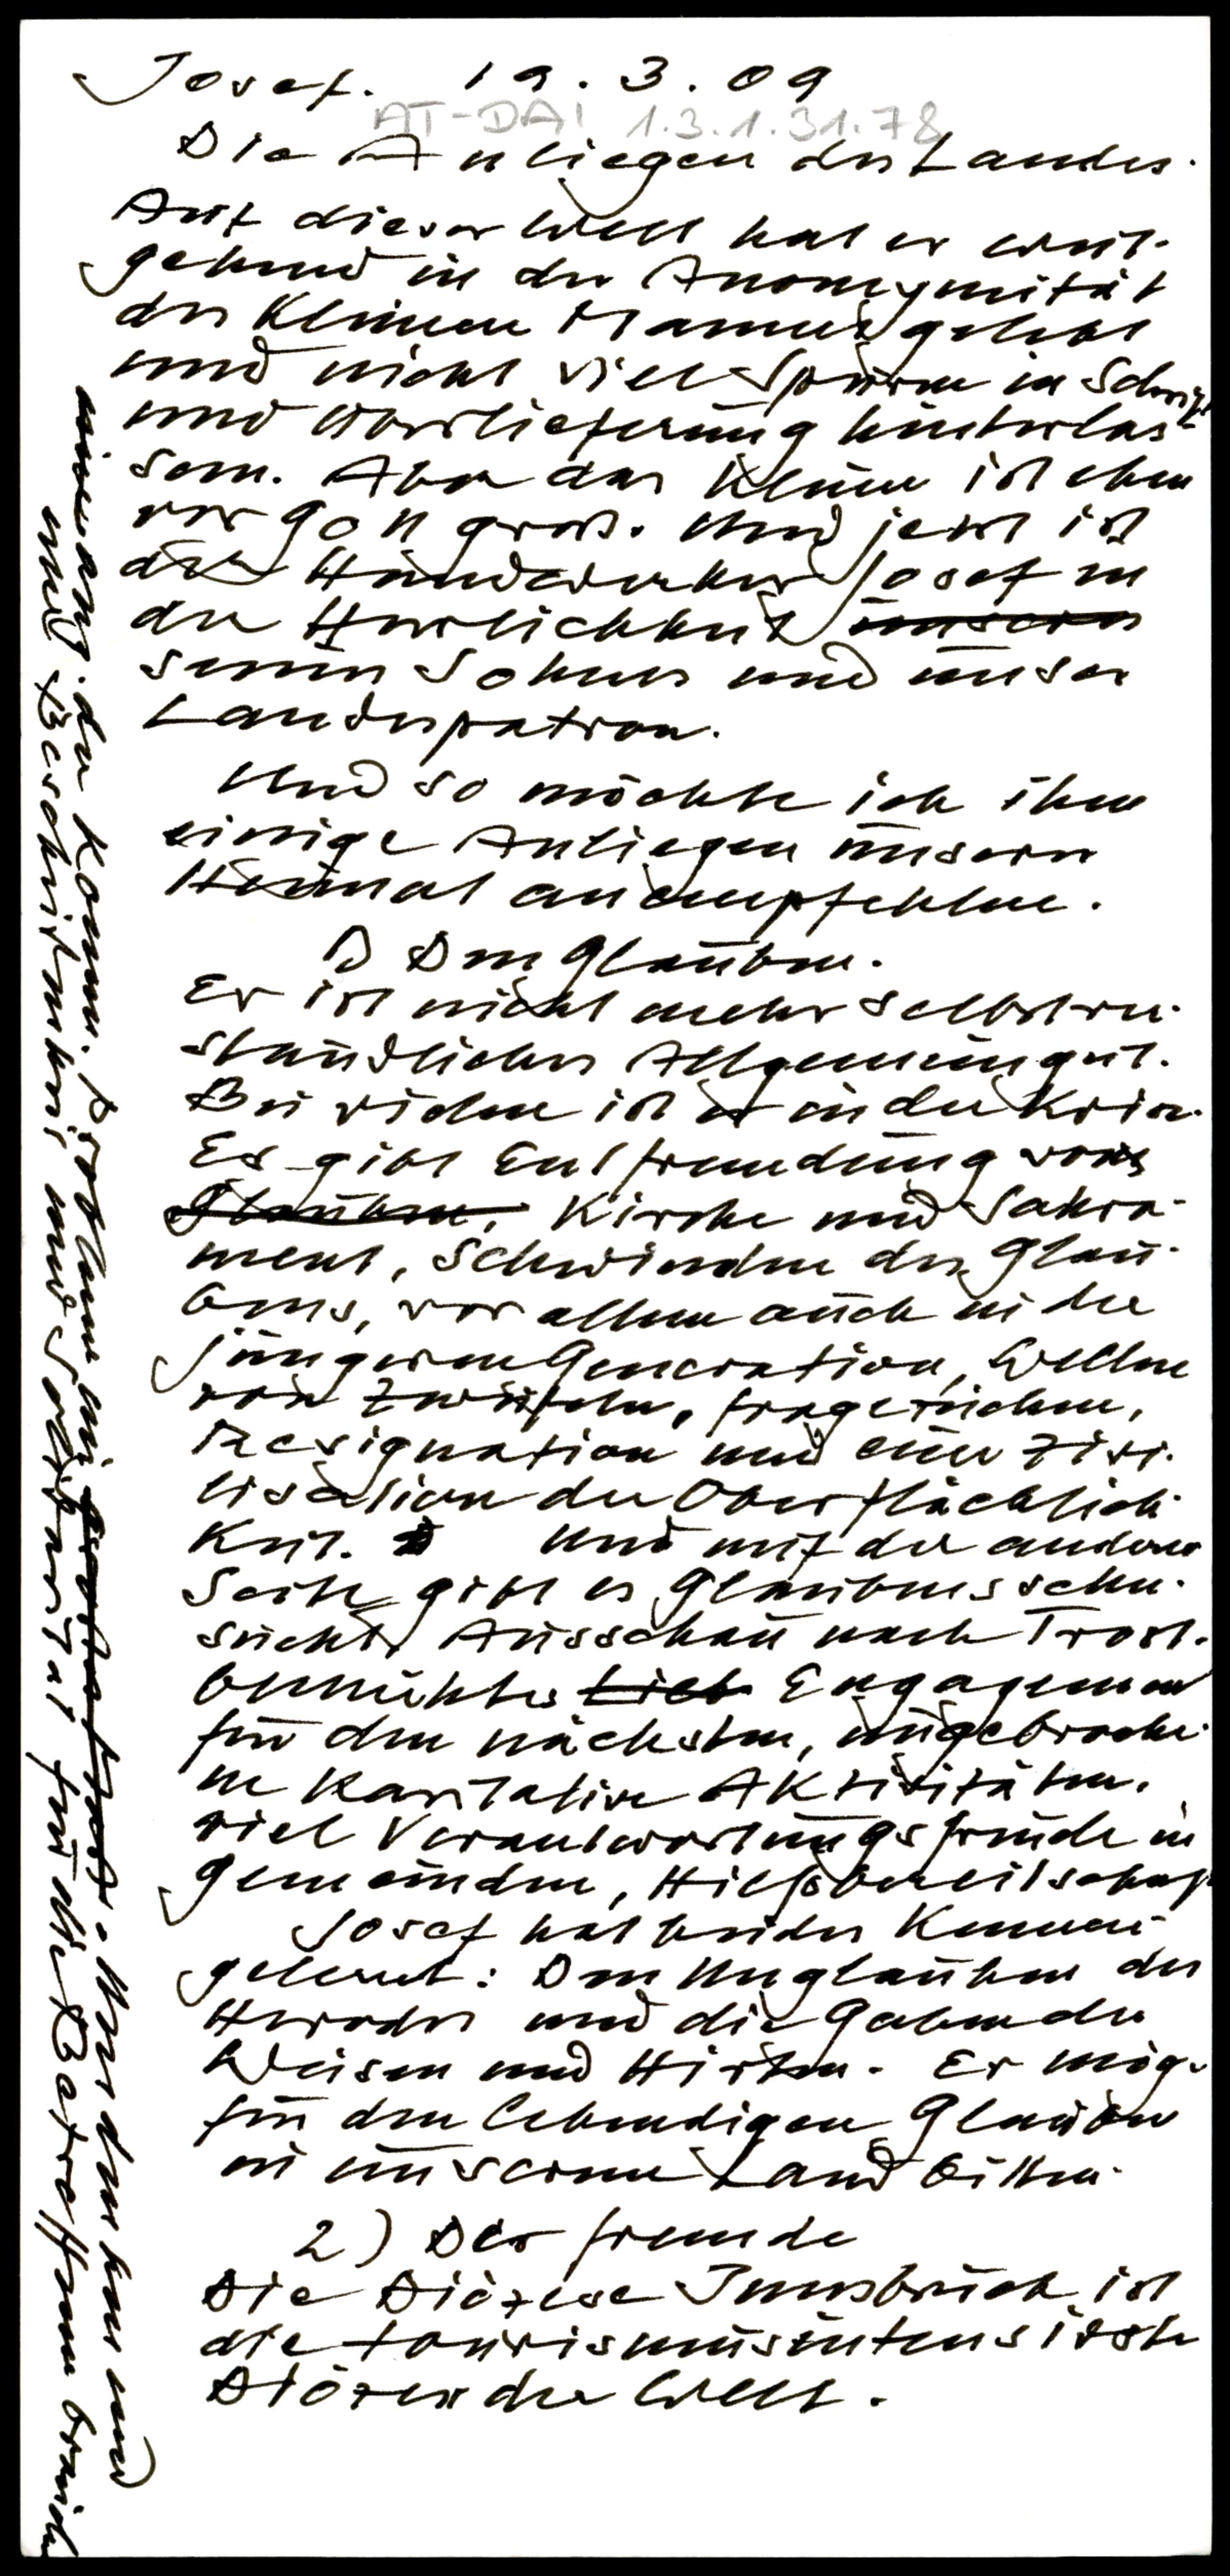 Josef. 19.3.09
AT-DAI 1.3.1.31.78
Die Anliegen des Landes.
Auf dieser Welt hat er weit-
gehend in der Anonymität
des kleinen Mannes gelebt
und nicht viel Spuren in Schrift
und Überlieferung hinterlas-
sen. Aber das Kleine ist eben
vor Gott groß. Und jetzt ist
der Handwerker Josef in
der Herrlichkeit unseres
seines Sohnes und unser
Landespatron.
Und so möchte ich ihm
einige Anliegen unserer
Heimat anempfehlen.
1) Den Glauben.
Er ist nicht mehr selbstver-
ständliches Allgemeingut.
Bei vielen ist er in der Krise.
Es gibt Entfremdung von
Glauben, Kirche und Sakra-
ment, Schwinden des Glau-
bens, vor allem auch in der
jüngeren Generation, Wellen
von Zweifeln, Fragezeichen,
Resignation und eine Zivi-
lisation der Oberflächlich-
keit. Und auf der anderen
Seite gibt es Glaubenssehn-
sucht, Ausschau nach Trost.
bemühtes Lieb Engagement
für den nächsten, ungebroche-
ne karitative Aktivitäten,
viel Verantwortungsfreude in
Gemeinden, Hilfsbereitschaft
Josef hat beides kennen
gelernt: Den Unglauben des
Herodes und die Gaben der
Weisen und Hirten. Er möge
für den lebendigen Glauben
in unserem Land bitten.
2) Der Fremde
Die Diözese Innsbruck ist
die tourismusintensivste
Diözese der Welt.
und Bescheidenheit und Solidarität für die Betroffenen brauchen